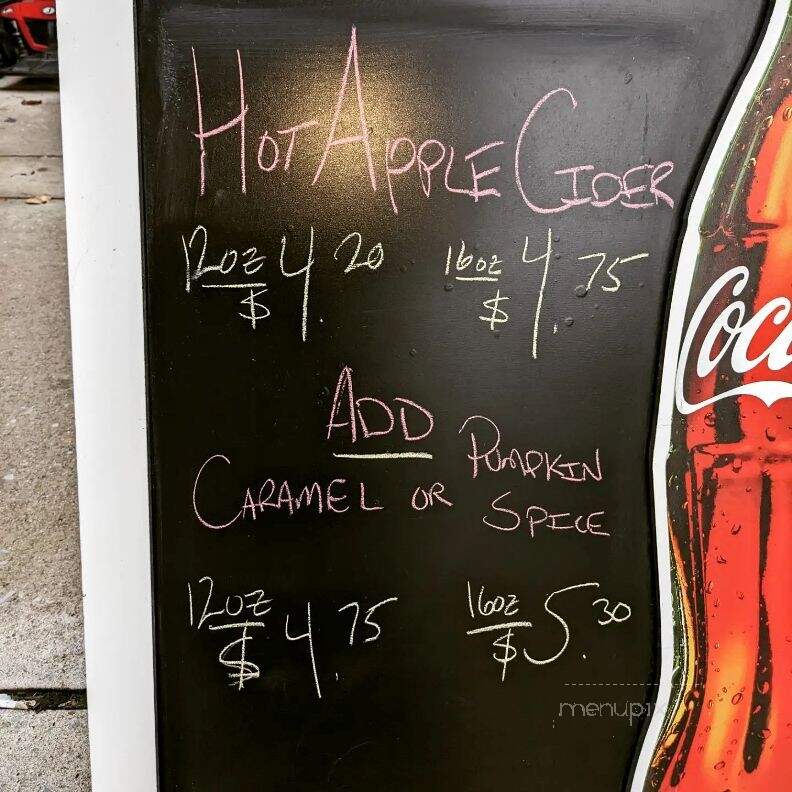 HOT APPLE CIDER
12oz $4.20 16oz $4.75
ADD
CARAMEL OR PUMPKIN SPICE
12oz $4.75 16oz $5.30
Coca
menupix